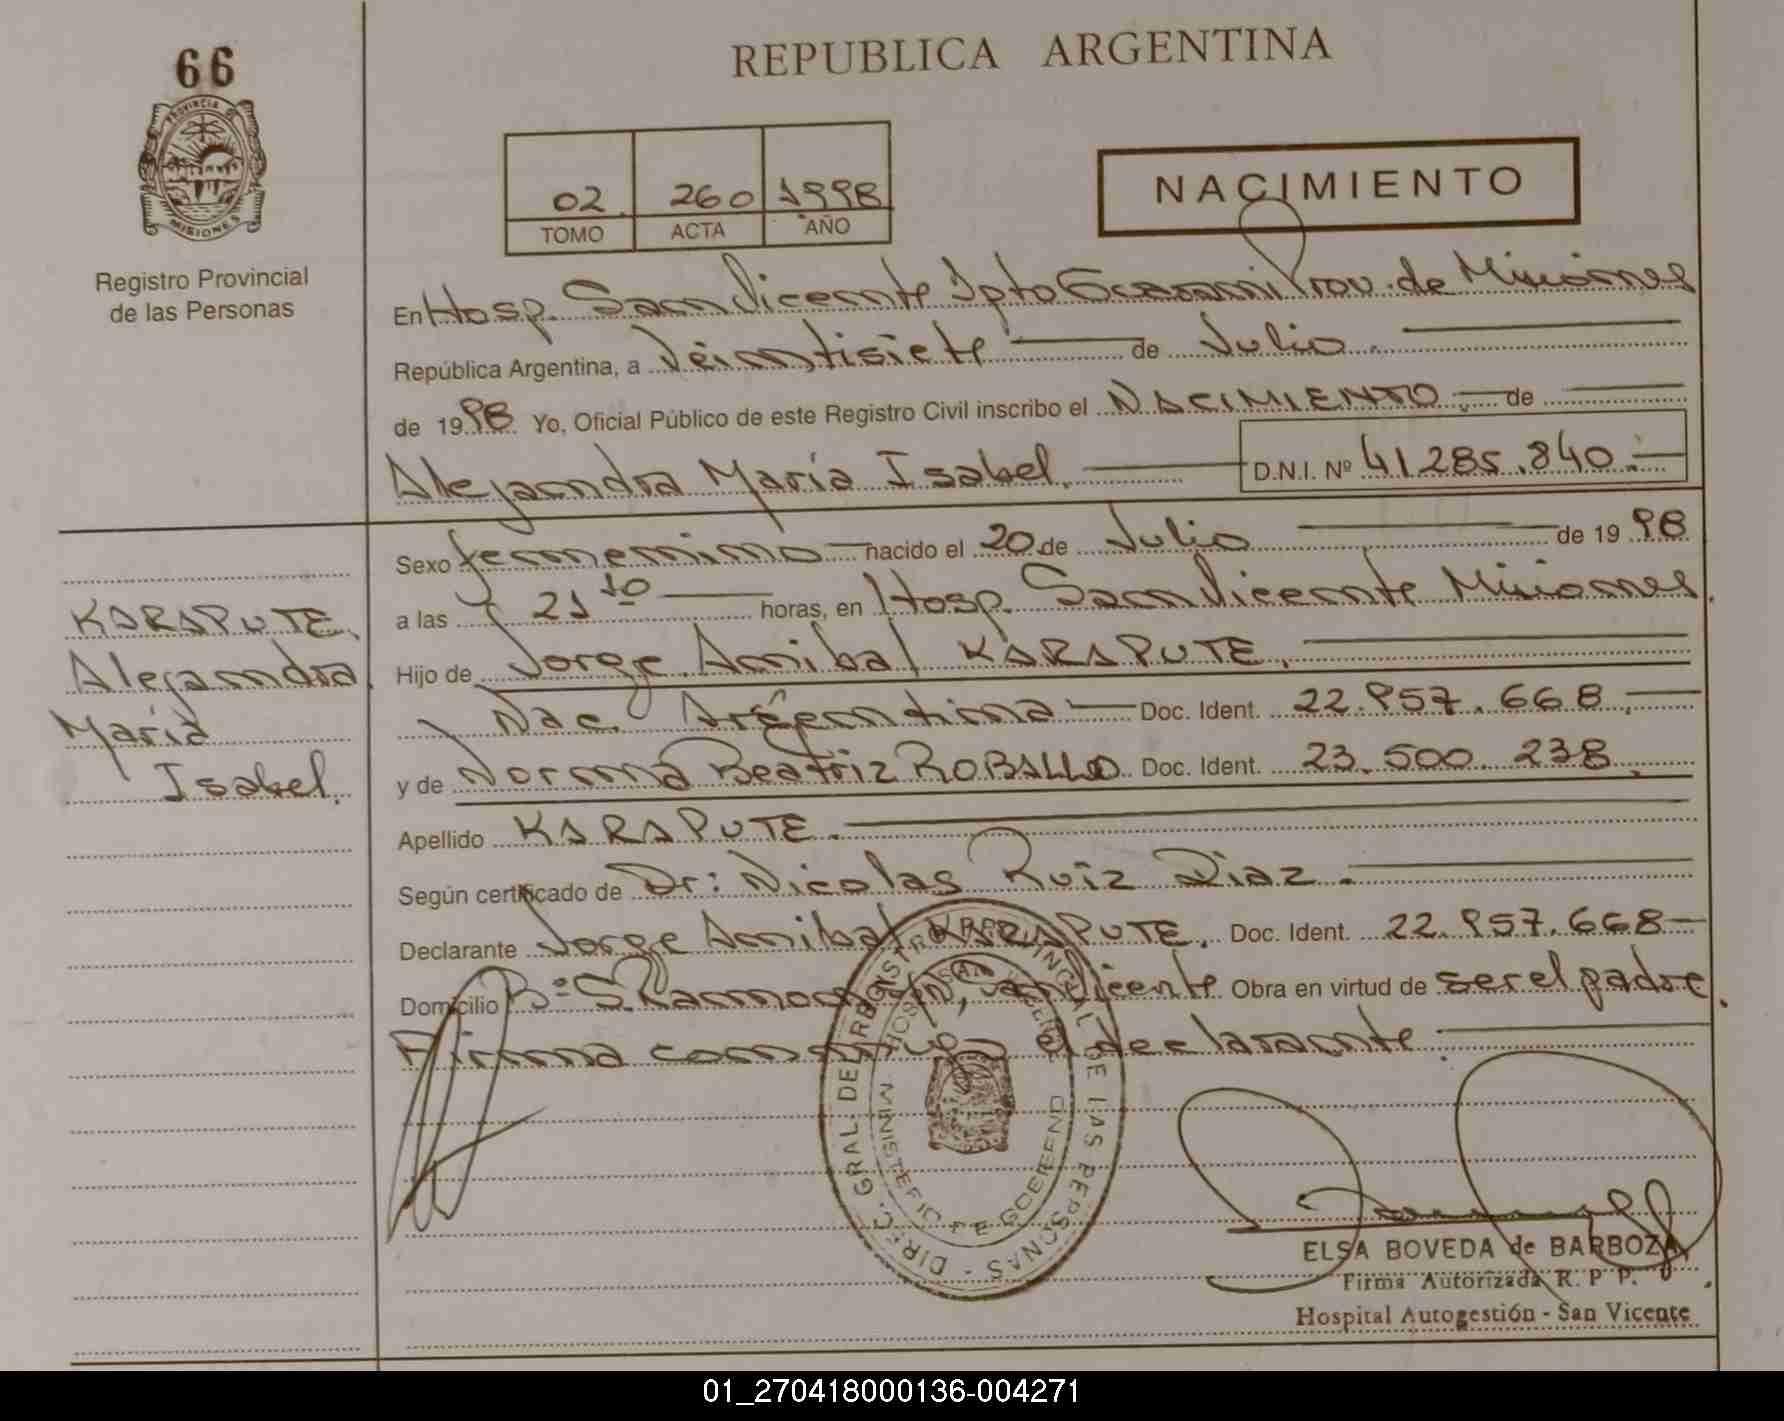 66
PROVINCIA DE
MISIONES
Registro Provincial
de las Personas
REPUBLICA ARGENTINA
02 260 1998
TOMO ACTA AÑO
NACIMIENTO
En Hosp. San Vicente Dpto Guaraní Prov. de Misiones
República Argentina, a Veintisiete de Julio.
de 1998 Yo, Oficial Público de este Registro Civil inscribo el NACIMIENTO. de
Alejandra María Isabel. D.N.I. Nº 41285.840.-
Sexo femenino nacido el 20 de Julio de 1998
a las 21 10 horas, en Hosp. San Vicente Misiones.
Hijo de Jorge Anibal KARAPUTE.
Nac. Argentina Doc. Ident. 22.957.668.
y de Norma Beatriz ROBALLO Doc. Ident. 23.500.238.
Apellido KARAPUTE.
Según certificado de Dr: Nicolas Ruiz Diaz.
Declarante Jorge Anibal KARAPUTE. Doc. Ident. 22.957.668
Domicilio Bº S. Ramon s/n, San Vicente Obra en virtud de ser el padre.
Firma conmigo el declarante.
KARAPUTE.
Alejandra
María
Isabel.
DIREC. GRAL. DEL REGISTRO PROVINCIAL DE LAS PERSONAS
HOSP. SAN VICENTE
MINISTERIO DE GOBIERNO
ELSA BOVEDA de BARBOZA
Firma Autorizada R. P P.
Hospital Autogestión - San Vicente
01_270418000136-004271